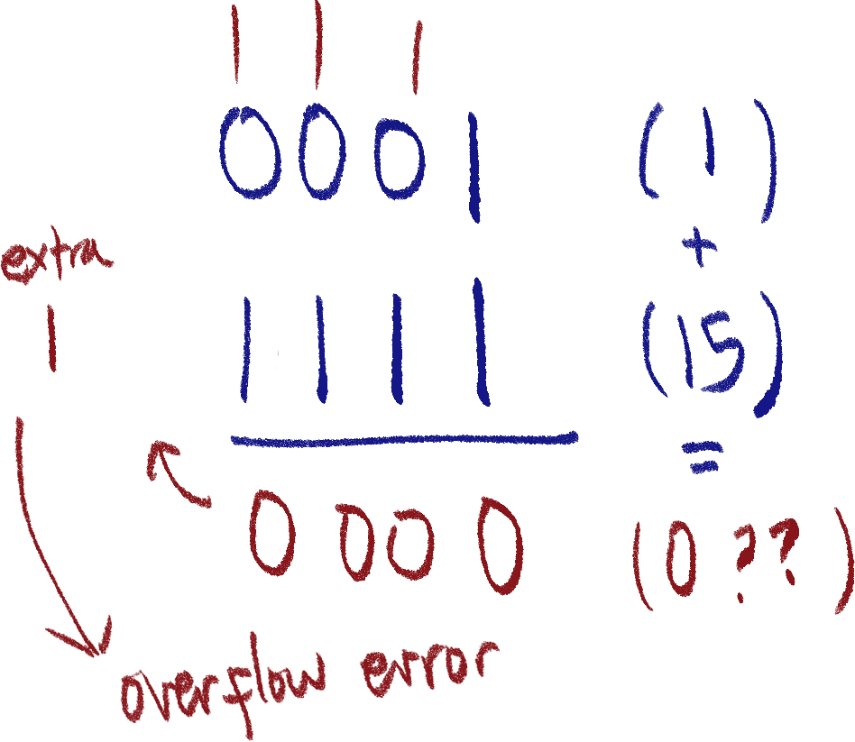 1 1 1
0001 (1)
extra +
1 1111 (15)
=
0000 (0 ??)
overflow error